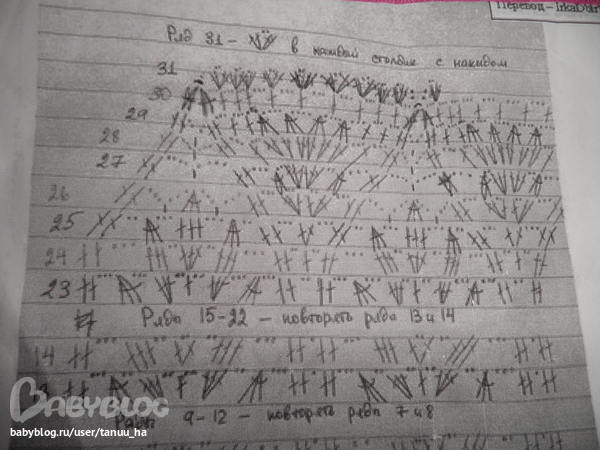 Перевод – IrkaDnr
Ряд 31 – в каждый столбик с накидом
31
30
29
28
27
26
25
24
23
Ряды 15-22 – повторять ряды 13 и 14
14
Ряды 9-12 – повторять ряды 7 и 8
BABYBLOG
babyblog.ru/user/tanuu_ha